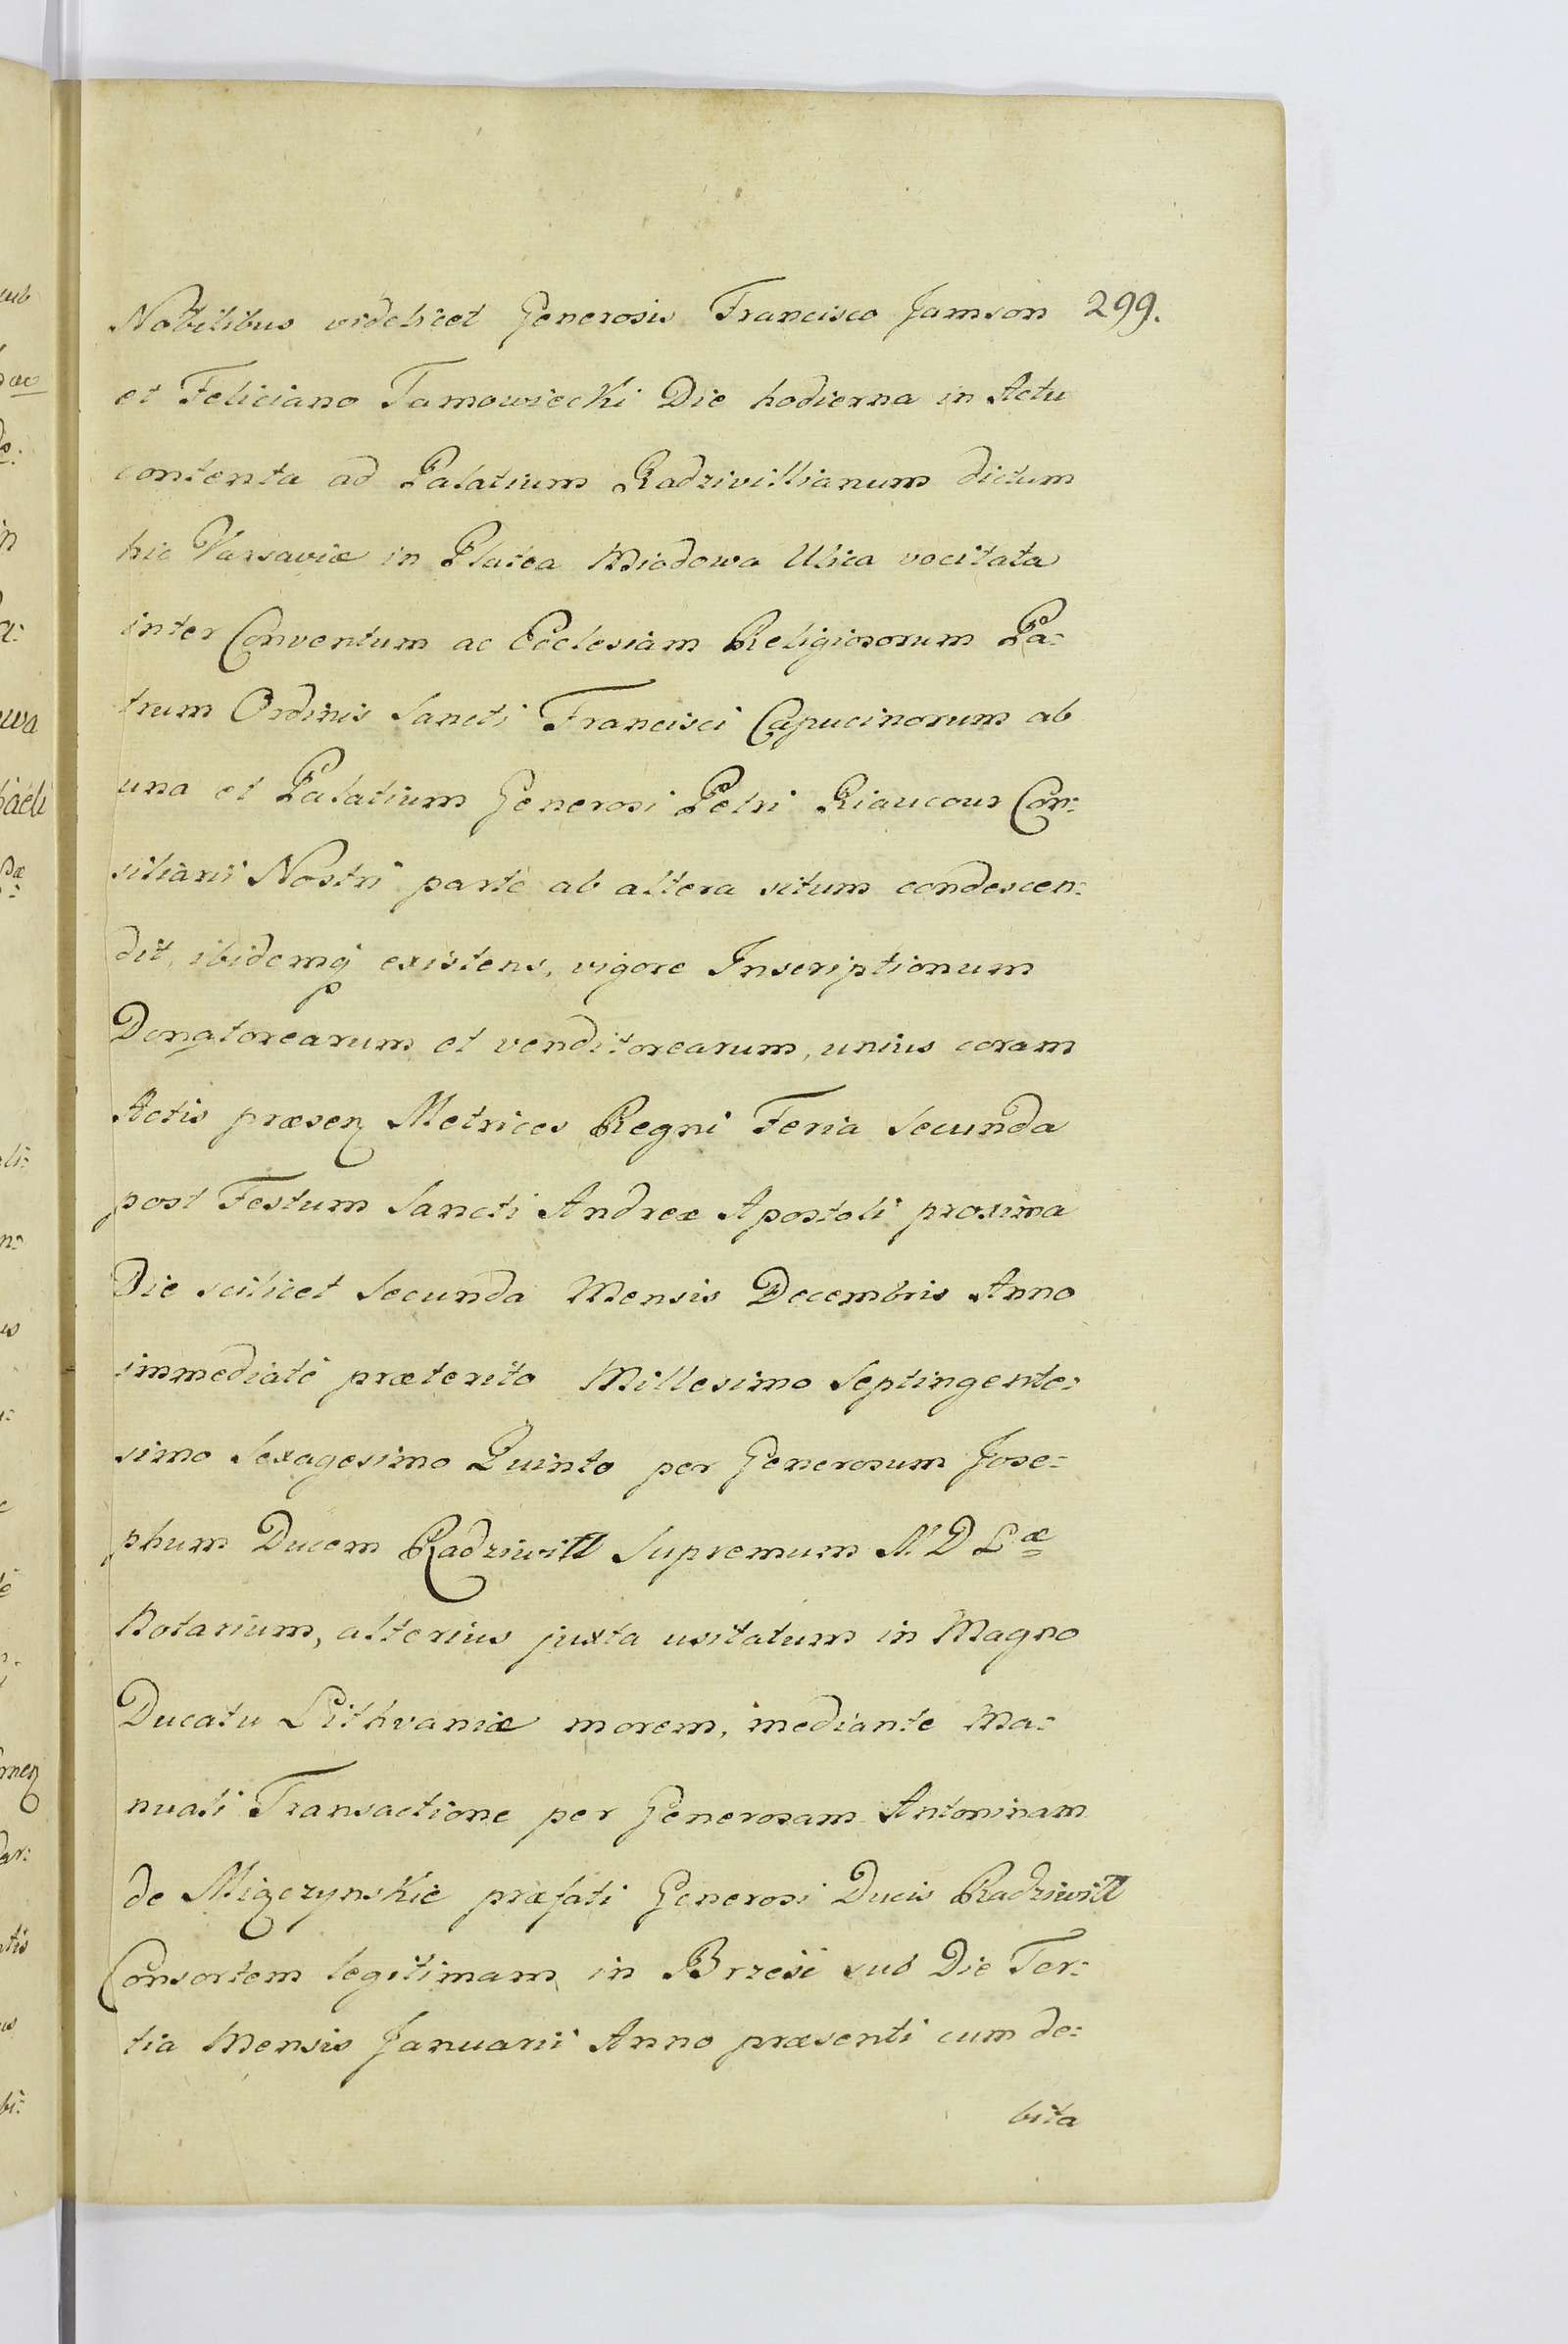 Nobilibus videlicet Generosis Francisco Jamson 299.
et Feliciano Tamowiecki Die hodierna in Actu
contenta ad Palatium Radzivillianum dictum
hic Varsaviæ in Platea Miodowa Ulica vocitata
inter Conventum ac Ecclesiam Religiosorum Pa:
trum Ordinis Sancti Francisci Capucinorum ab
una et Palatium Generosi Petri Riaucour Con:
siliarii Nostri parte ab altera situm condescen:
dit, ibidemq existens, vigore Inscriptionum
Donatorearum et venditorearum, unius coram
Actis præsen Metrices Regni Feria Secunda
post Festum Sancti Andreæ Apostoli proxima
Die scilicet Secunda Mensis Decembris Anno
immediatè præterito Millesimo Septingente:
simo Sexagesimo Quinto per Generosum Jose:
phum Ducem Radziwiłł Supremum M. D Læ
Notarium, alterius juxta usitatum in Magno
Ducatu Lithvaniæ morem, mediante Ma:
nuali Transactione per Generosam Antoninam
de Miączynskie præfati Generosi Ducis Radziwiłł
Consortem legitimam in Brzesć sub Die Ter:
tia Mensis Januarii Anno præsenti cum de:
bita